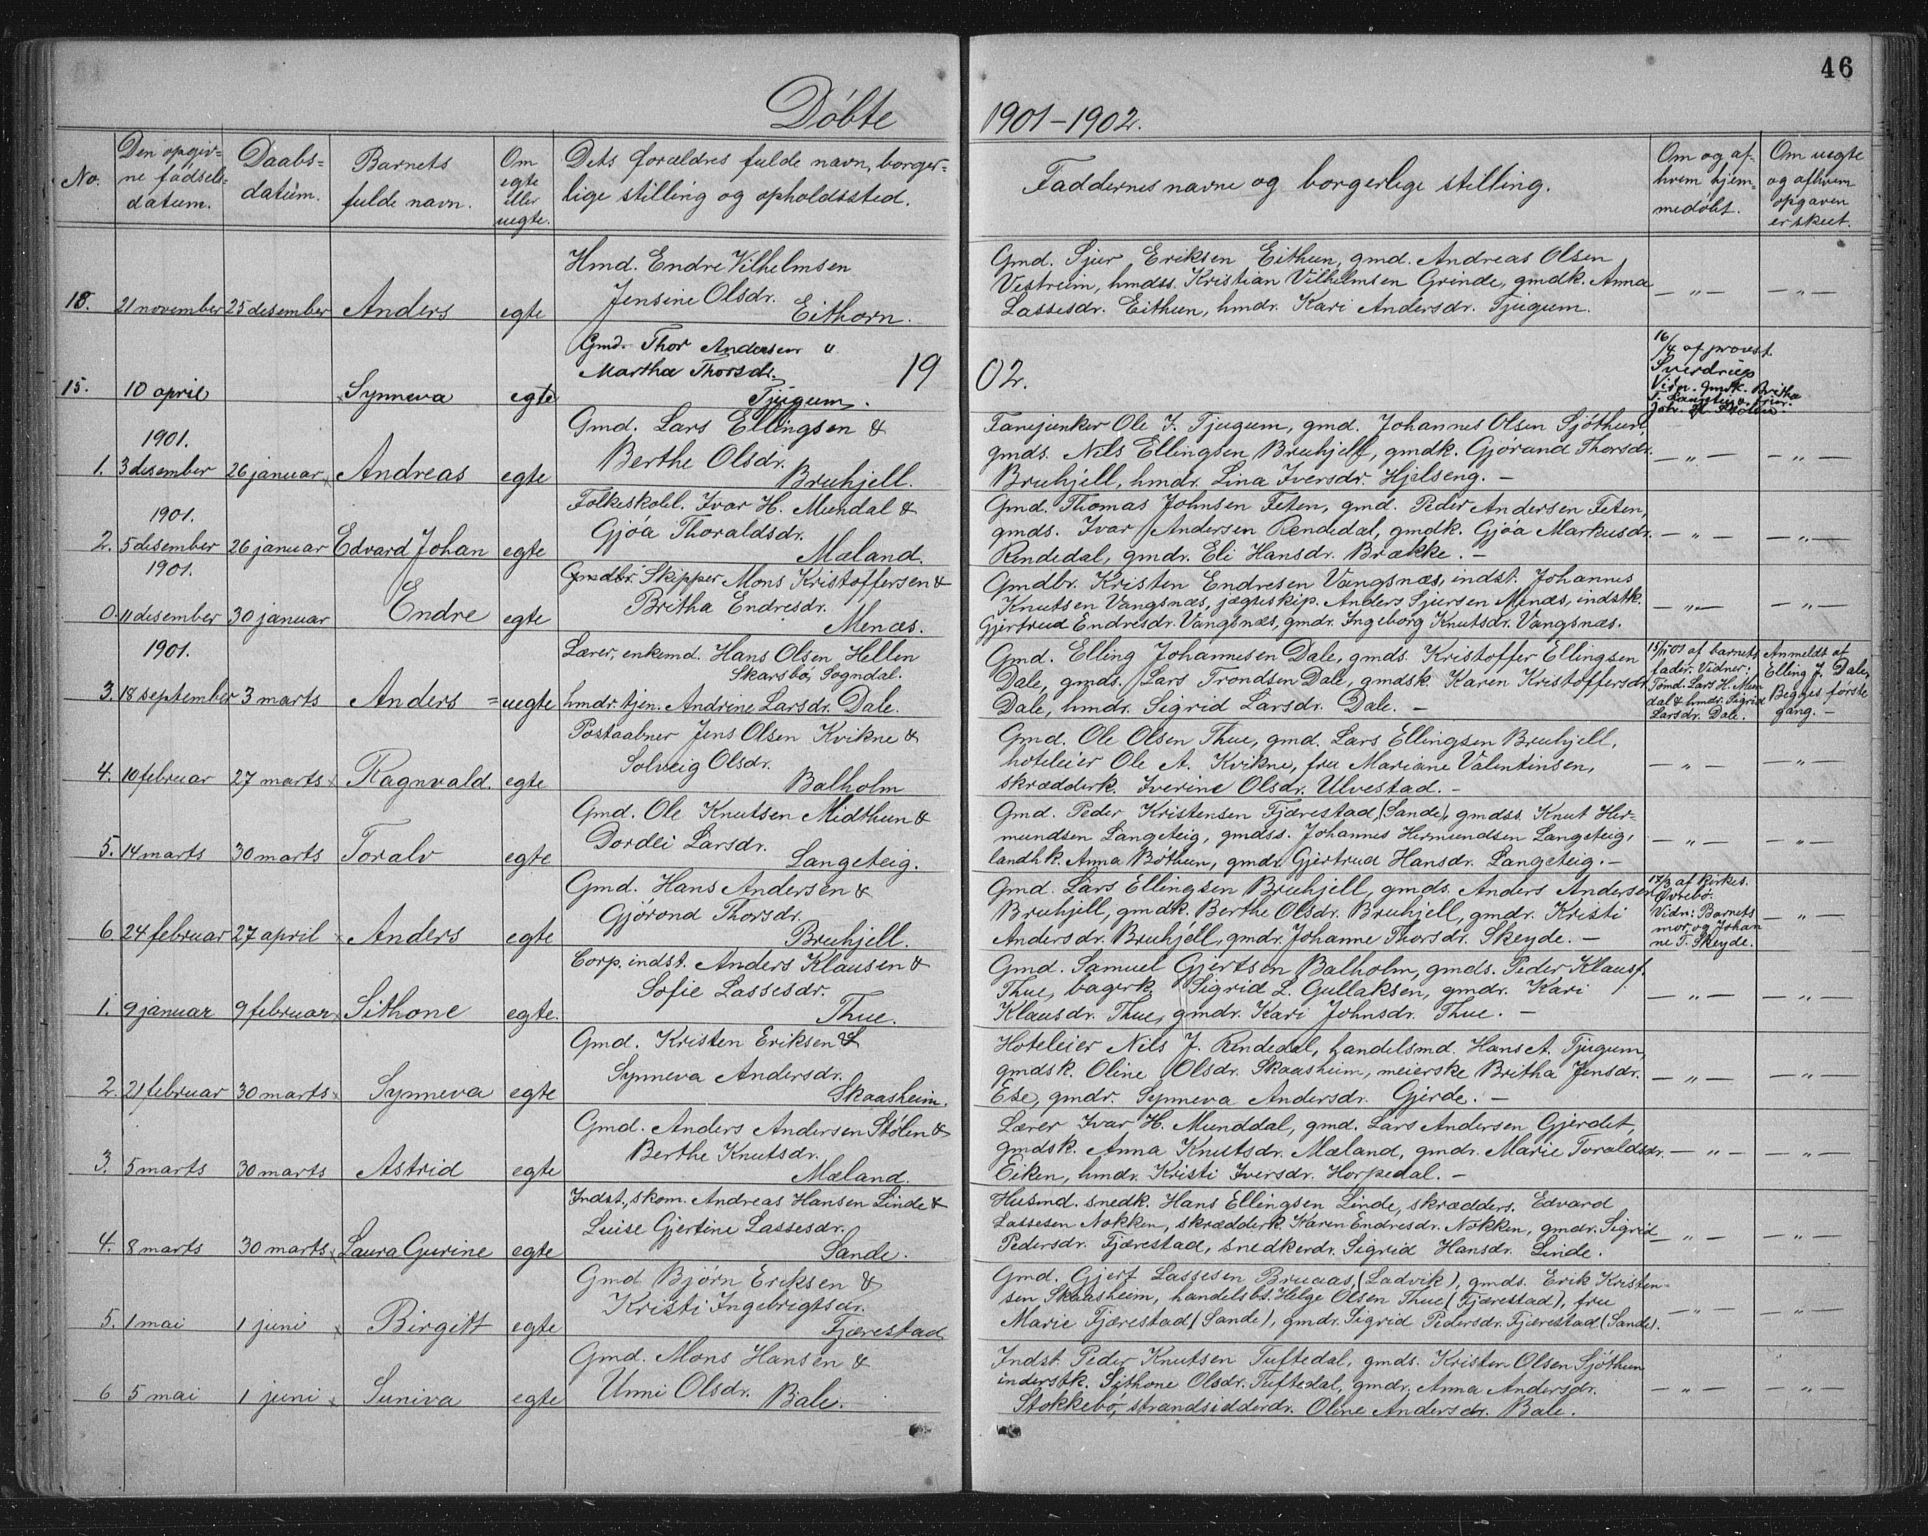 46
Döbte 1901-1902.
No. Den opgiv= ne födsels= datum. Daabs= datum. Barnets fulde navn. Om egte eller uegte. Dets forældres fulde navn, borger= lige stilling og opholdssted. Faddernes navne og borgerlige stilling. Om og af hvem hjem= medöbt. Om uegte og afhvem opgaven er skeet.
Hmd. Endre Vilhelmsen Gmd. Sjur Eriksen Eithun, gmd. Andreas Olsen
Jensine Olsdr. Vestreim, hmdss. Kristian Vilhelmsen Grinde, gmdk. Anna
18. 21 november 25 desember Anders egte Eithorn. Lassesdr. Eithun, hmdr. Kari Andersdr. Tjugum. — " — — " —
Gmd. Thor Andersen u
Martha Thorsdr.
1902.
15. 10 april Synneva egte Tjugum.
16/4 af provst
Sverdrup
Vidn. gmdk. Britha
Gmd. Lars Ellingsen & Fanejunker Ole J. Tjugum, gmd. Johannes Olsen Sjöthun,
1901. Berthe Olsdr. gmds. Nils Ellingsen Bruhjell, gmdk. Gjörand Thorsdr.
1. 3 desember 26 januar Andreas egte Bruhjell. Bruhjell, hmdr. Lina Iversdr. Hjelseng. — — " — — " —
Folkeskoll. Ivar H. Mundal & Gmd. Thomas Johnsen Feten, gmd. Peder Andersen Feten,
1901. Gjöa Thoraldsdr. gmds. Ivar Andersen Rendedal, gmdk. Gjöa Markusdr.
2. 5 desember 26 januar Edvard Johan egte Mæland. Rendedal, gmdr. Eli Hansdr. Brække. — — " — — " —
1901. Gmdbr. Skipper Mons Kristoffersen & Gmdbr. Kristen Endresen Vangsnæs, indst. Johannes
Britha Endresdr. Knutsen Vangsnæs, jægteskip. Anders Sjursen Menæs, indstk.
0. 11 desember 30 januar Endre egte Menæs. Gjertrud Endresdr. Vangsnæs, gmdr. Ingeborg Knutsdr. Vangsnæs. — " — — " —
1901. Lærer, enkemd. Hans Olsen Hellen Gmd. Elling Johannesen Dale, gmds. Kristoffer Ellingsen
Skarsbö, Sogndal. Dale, gmds. Lars Trondsen Dale, gmdsk. Karen Kristoffersdr.
3. 18 september 3 marts Anders = uegte hmdr. tjen. Andrine Larsdr. Dale. Dale, hmdr. Sigrid Larsdr. Dale. —
af barnets
fader. Vidner:
Tömd. Lars H. Mun
dal & hmdr. Sigrid
Larsdr. Dale.
Anmeldt af
Elling J. Dale,
Begges förste
gang. —
Postaabner Jens Olsen Kvikne & Gmd. Ole Olsen Thue, gmd. Lars Ellingsen Bruhjell,
Solveig Olsdr. hoteleier Ole A. Kvikne, fru Mariane Valentinsen,
4. 10 februar 27 marts Ragnvald. egte Balholm skrædderk. Iverine Olsdr. Ulvestad. — — " — — " —
Gmd. Ole Knutsen Midthun & Gmd. Peder Kristensen Fjærestad, (Sande), gmdss. Knut Her=
Dordei Larsdr. mundsen Langeteig, gmdss. Johannes Hermundsen Langeteig,
5. 14 marts 30 marts Toralv egte Langeteig. landhk. Anna Böthun, gmdr. Gjertrud Hansdr. Langeteig. — — " — — " —
Gmd. Hans Andersen & Gmd. Lars Ellingsen Bruhjell, gmds. Anders Andersen
Gjörond Thorsdr. Bruhjell, gmdk. Berthe Olsdr. Bruhjell, gmdr. Kristi
6 24 februar 27 april Anders egte Bruhjell. Andersdr. Bruhjell, gmdr. Johanne Thorsdr. Skeyde. — — " —
af Kirkes.
Övrebö.
Vidn: Barnets
mor, og Johan
ne T. Skeyde.
Corp. indst. Anders Klausen & Gmd. Samuel Gjertsen Balholm, gmds. Peder Klaus.
Sofie Lassesdr. Thue, bagerk. Sigrid L. Gullaksen, gmdr. Kari
1. 9 januar 9 februar Sithone egte. Thue. Klausdr. Thue, gmdr. Kari Johnsdr. Thue. — — " — — " —
Gmd. Kristen Eriksen & Hoteleier Nils J. Rendedal, handelsmd. Hans A. Tjugum,
Synneva Andersdr. gmdsk. Oline Olsdr. Skaasheim, meierske Britha Jensdr.
2. 21 februar 30 marts Synneva egte Skaasheim. Ese, gmdr. Synneva Andersdr. Gjerde. — — " — — " —
Gmd. Anders Andersen Stölen & Lærer Ivar H. Munddal, gmd. Lars Andersen Gjerdet,
Berthe Knutsdr. gmdsk. Anna Knutsdr. Mæland, gmdr. Marie Toraldsdr.
3. 5 marts 30 marts Astrid egte Mæland. Eiken, hmdr. Kristi Iversdr. Horpedal. — — " — — " —
Indst., skom. Andreas Hansen Linde & Husmd. snedk. Hans Ellingsen Linde, skrædders. Edvard
Luise Gjertine Lassesdr. Lassesen Nokken, skrædderk. Karen Endresdr. Nokken, gmdr. Sigrid
4. 8 marts 30 marts Laura Gurine egte Sande. Pedersdr. Fjærestad, snedkerdr. Sigrid Hansdr. Linde. — " — — " —
Gmd Björn Eriksen & Gmd. Gjert Lassesen Bruaas, (Ladvik), gmds. Erik Kristen=
Kristi Ingebrigtsdr. sen Skaasheim, handelsbs. Helge Olsen Thue (Fjærestad), fru
5. 1 mai 1 juni Birgitt egte Fjærestad Marie Fjærestad (Sande), gmdr. Sigrid Pedersdr. Fjærestad (Sande). — " — — " —
Gmd. Mons Hansen & Indst. Peder Knutsen Tuftedal, gmds. Kristen Olsen Sjöthun
Unni Olsdr. inderstk. Sithone Olsdr. Tuftedal, gmdr. Anna Andersdr.
6 5 mai 1 juni Suniva egte Bale. Stokkebö, strandsidderdr. Oline Andersdr. Bale. — " — — " —